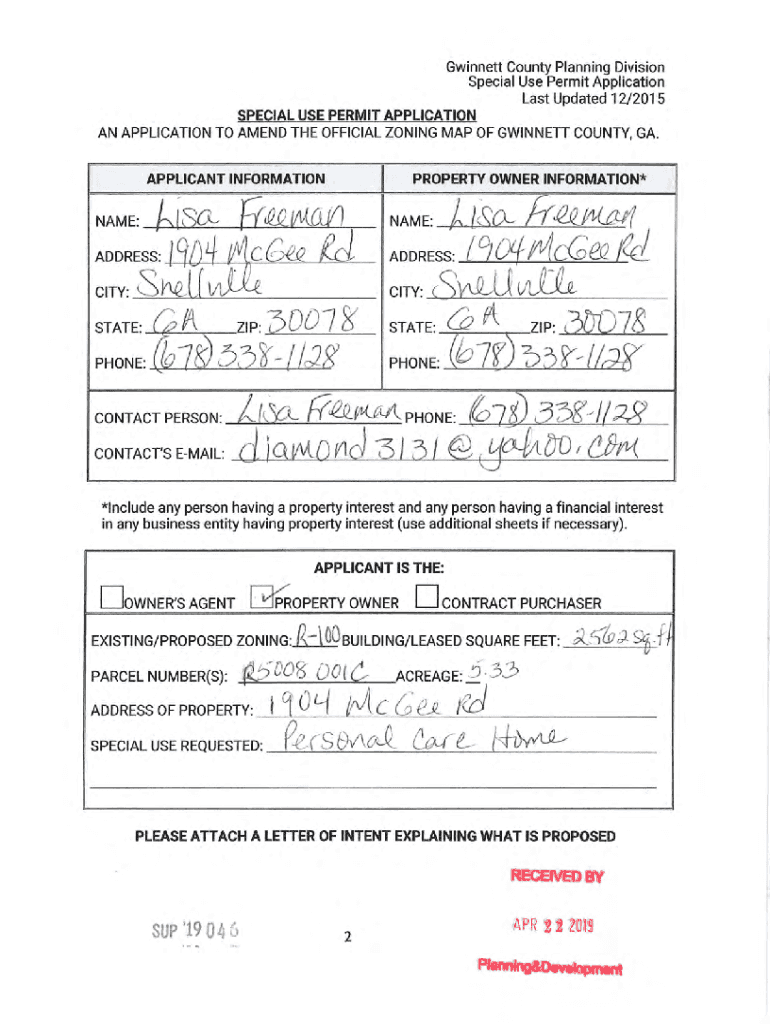 Gwinnett County Planning Division
Special Use Permit Application
Last Updated 12/2015
SPECIAL USE PERMIT APPLICATION
AN APPLICATION TO AMEND THE OFFICIAL ZONING MAP OF GWINNETT COUNTY, GA.
APPLICANT INFORMATION PROPERTY OWNER INFORMATION*
NAME: Lisa Freeman NAME: Lisa Freeman
ADDRESS: 1904 McGee Rd ADDRESS: 1904 McGee Rd
CITY: Snellville CITY: Snellville
STATE: GA ZIP: 30078 STATE: GA ZIP: 30078
PHONE: (678) 338-1128 PHONE: (678) 338-1128
CONTACT PERSON: Lisa Freeman PHONE: (678) 338-1128
CONTACT'S E-MAIL: diamond3131@yahoo.com
*Include any person having a property interest and any person having a financial interest
in any business entity having property interest (use additional sheets if necessary).
APPLICANT IS THE:
OWNER'S AGENT PROPERTY OWNER CONTRACT PURCHASER
EXISTING/PROPOSED ZONING: R-100 BUILDING/LEASED SQUARE FEET: 2562 sq.ft
PARCEL NUMBER(S): R5008 001C ACREAGE: 5.33
ADDRESS OF PROPERTY: 1904 McGee Rd
SPECIAL USE REQUESTED: Personal Care Home
PLEASE ATTACH A LETTER OF INTENT EXPLAINING WHAT IS PROPOSED
RECEIVED BY
SUP '19 046 2 APR 22 2019
Planning&Development